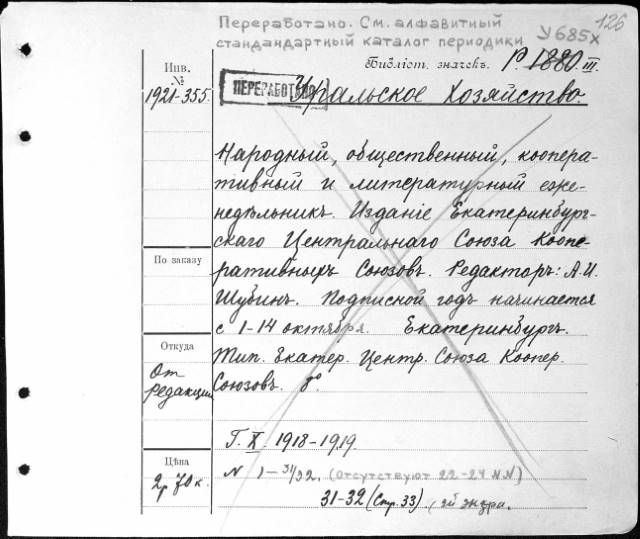 Переработано. См. алфавитный
стандандартный каталог периодики
У685х
126
Библіот. значекъ. Р 1880 III.
Инв.
№
1921-355.
ПЕРЕРАБОТАНО
Уральское Хозяйство.
Народный, общественный, коопера-
тивный и литературный еже-
недѣльникъ. Изданіе Екатеринбург-
скаго Центральнаго Союза Коопе-
ративныхъ Союзовъ. Редакторъ: А.И.
Шубинъ. Подписной годъ начинается
с 1-14 октября. Екатеринбургъ.
Тип. Екатер. Центр. Союза Коопер.
Союзовъ. 8°.
По заказу
Откуда
От
редакции
Цѣна
2р 70 к.
Г. X. 1918-1919.
N 1-31/32. (Отсутствуют 22-24 N.N)
31-32 (Стр. 33).